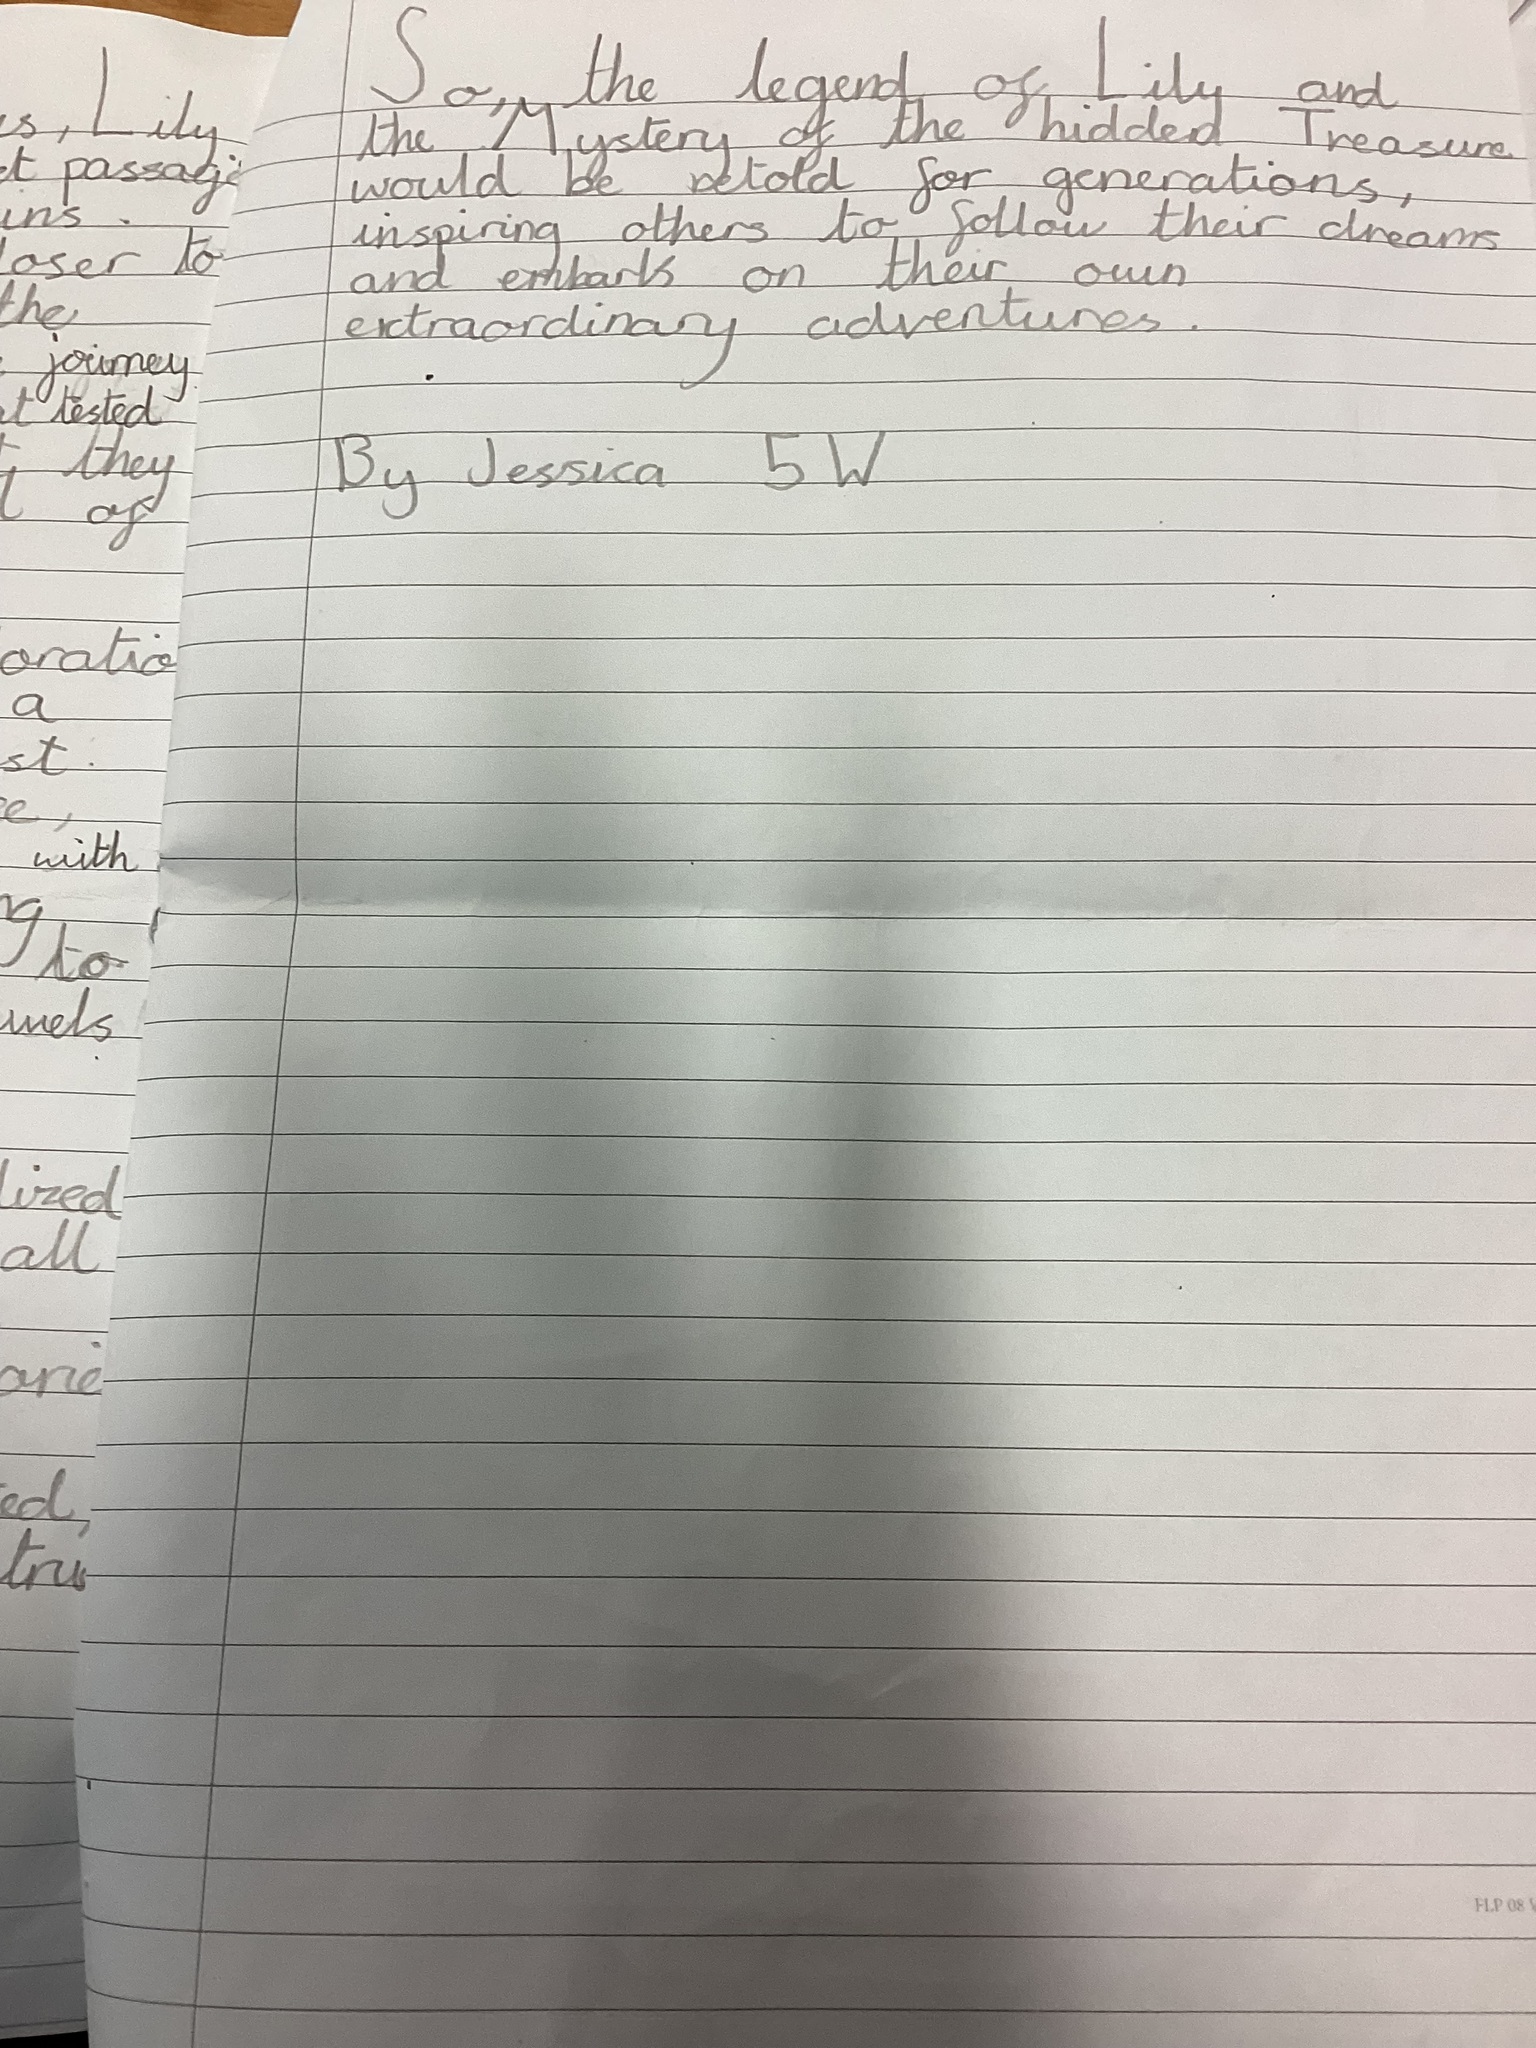 So, the legend of Lily and
the Mystery of the hidded Treasure
would be retold for generations,
inspiring others to follow their dreams
and embark on their own
extraordinary adventures.
By Jessica 5W
s, Lily
t passag
ins.
loser to
the
journey
t tested
they
of
oratio
a
st.
e,
with
ng
to
unels
lized
all
arie
ed,
tru
FLP 08